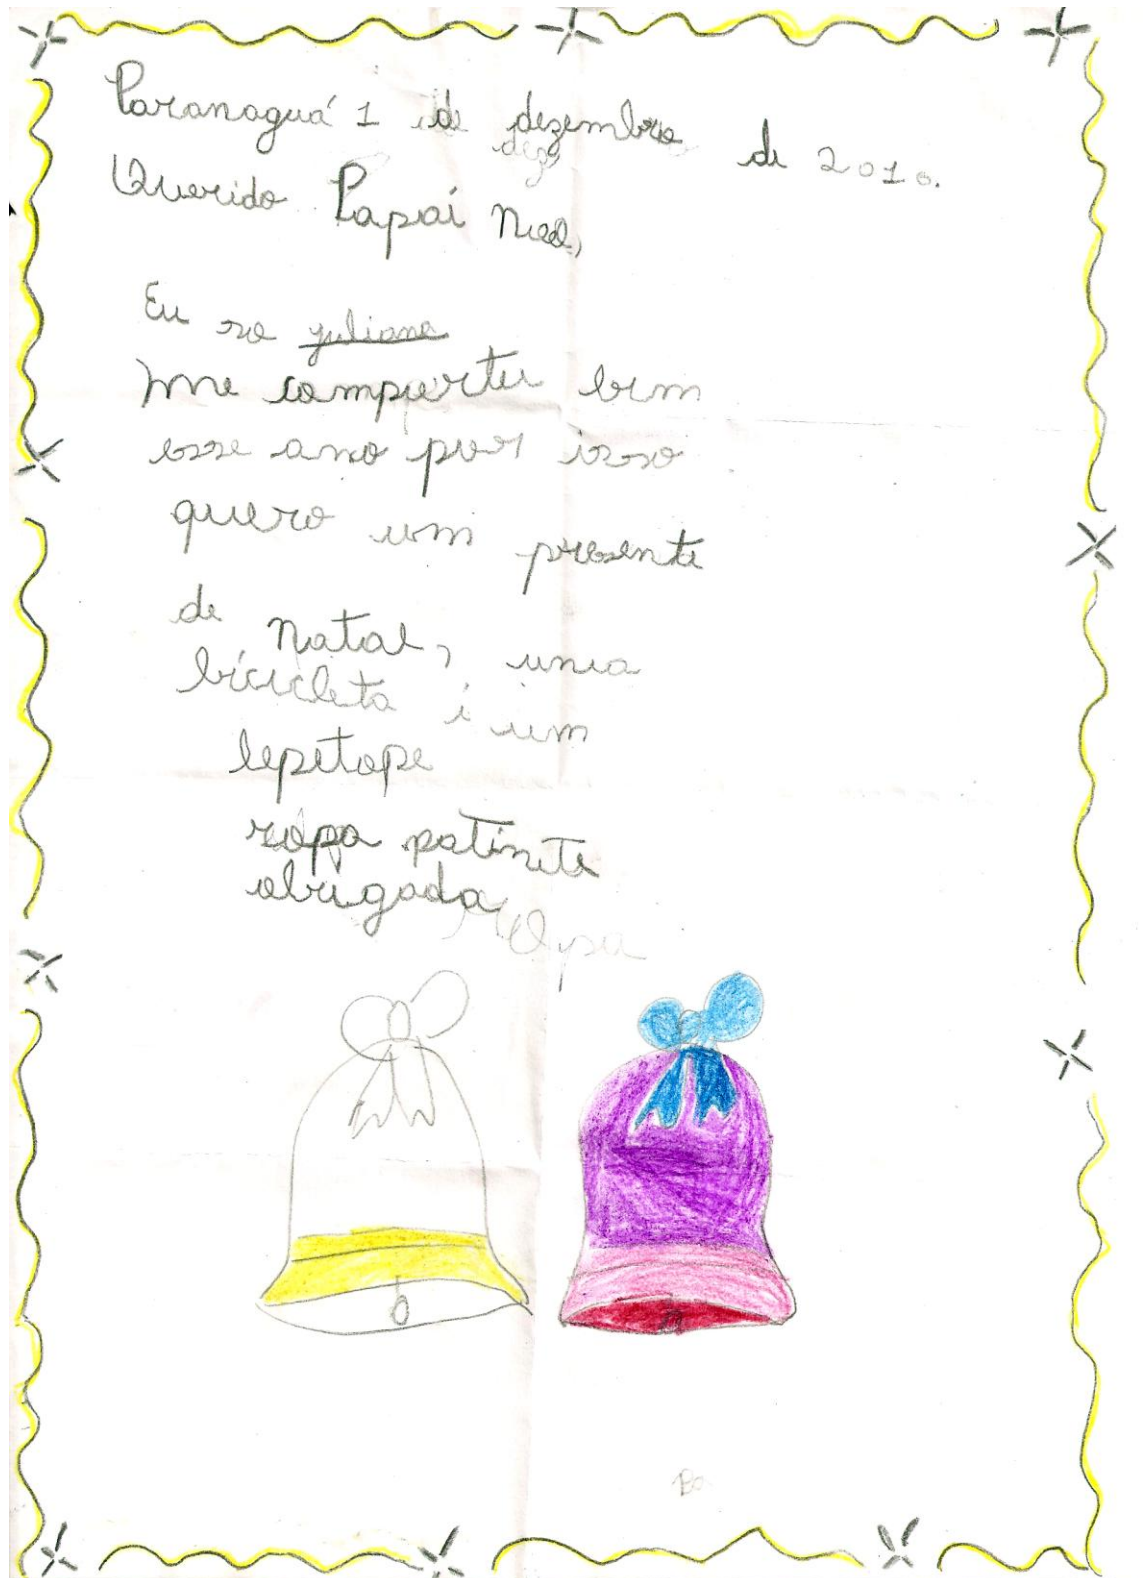 Paranaguá 1 de dezembro de 2010.
Querido Papai Noel,
Eu so juliana
me comportei bem
esse ano por isso
quero um presente
de Natal, uma
bicicleta i um
lepetope
ropa patinete
obrigada